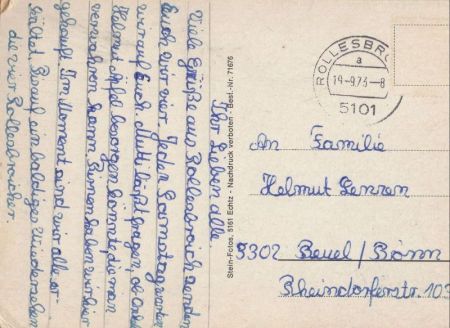 Ihr Lieben alle.
Viele Grüße aus Rollesbroich senden
Euch wir vier. Jeden Samstag warten
wir auf Euch. Mutti läßt fragen, ob Onkel
Helmut Äpfel besorgen könnte, die man
verwahren kann. Birnen haben wir hier
gekauft. Im Moment sind wir alle er-
kältet. Bis auf ein baldiges Wiedersehen
die vier Rollesbroicher.
Stein-Fotos, 5161 Echtz - Nachdruck verboten - Best.-Nr. 71676
ROLLESBRO
a
19.-9.73-8
5101
An Familie
Helmut Lenzen
5302 Beuel/Bonn
Rheindorferstr. 103